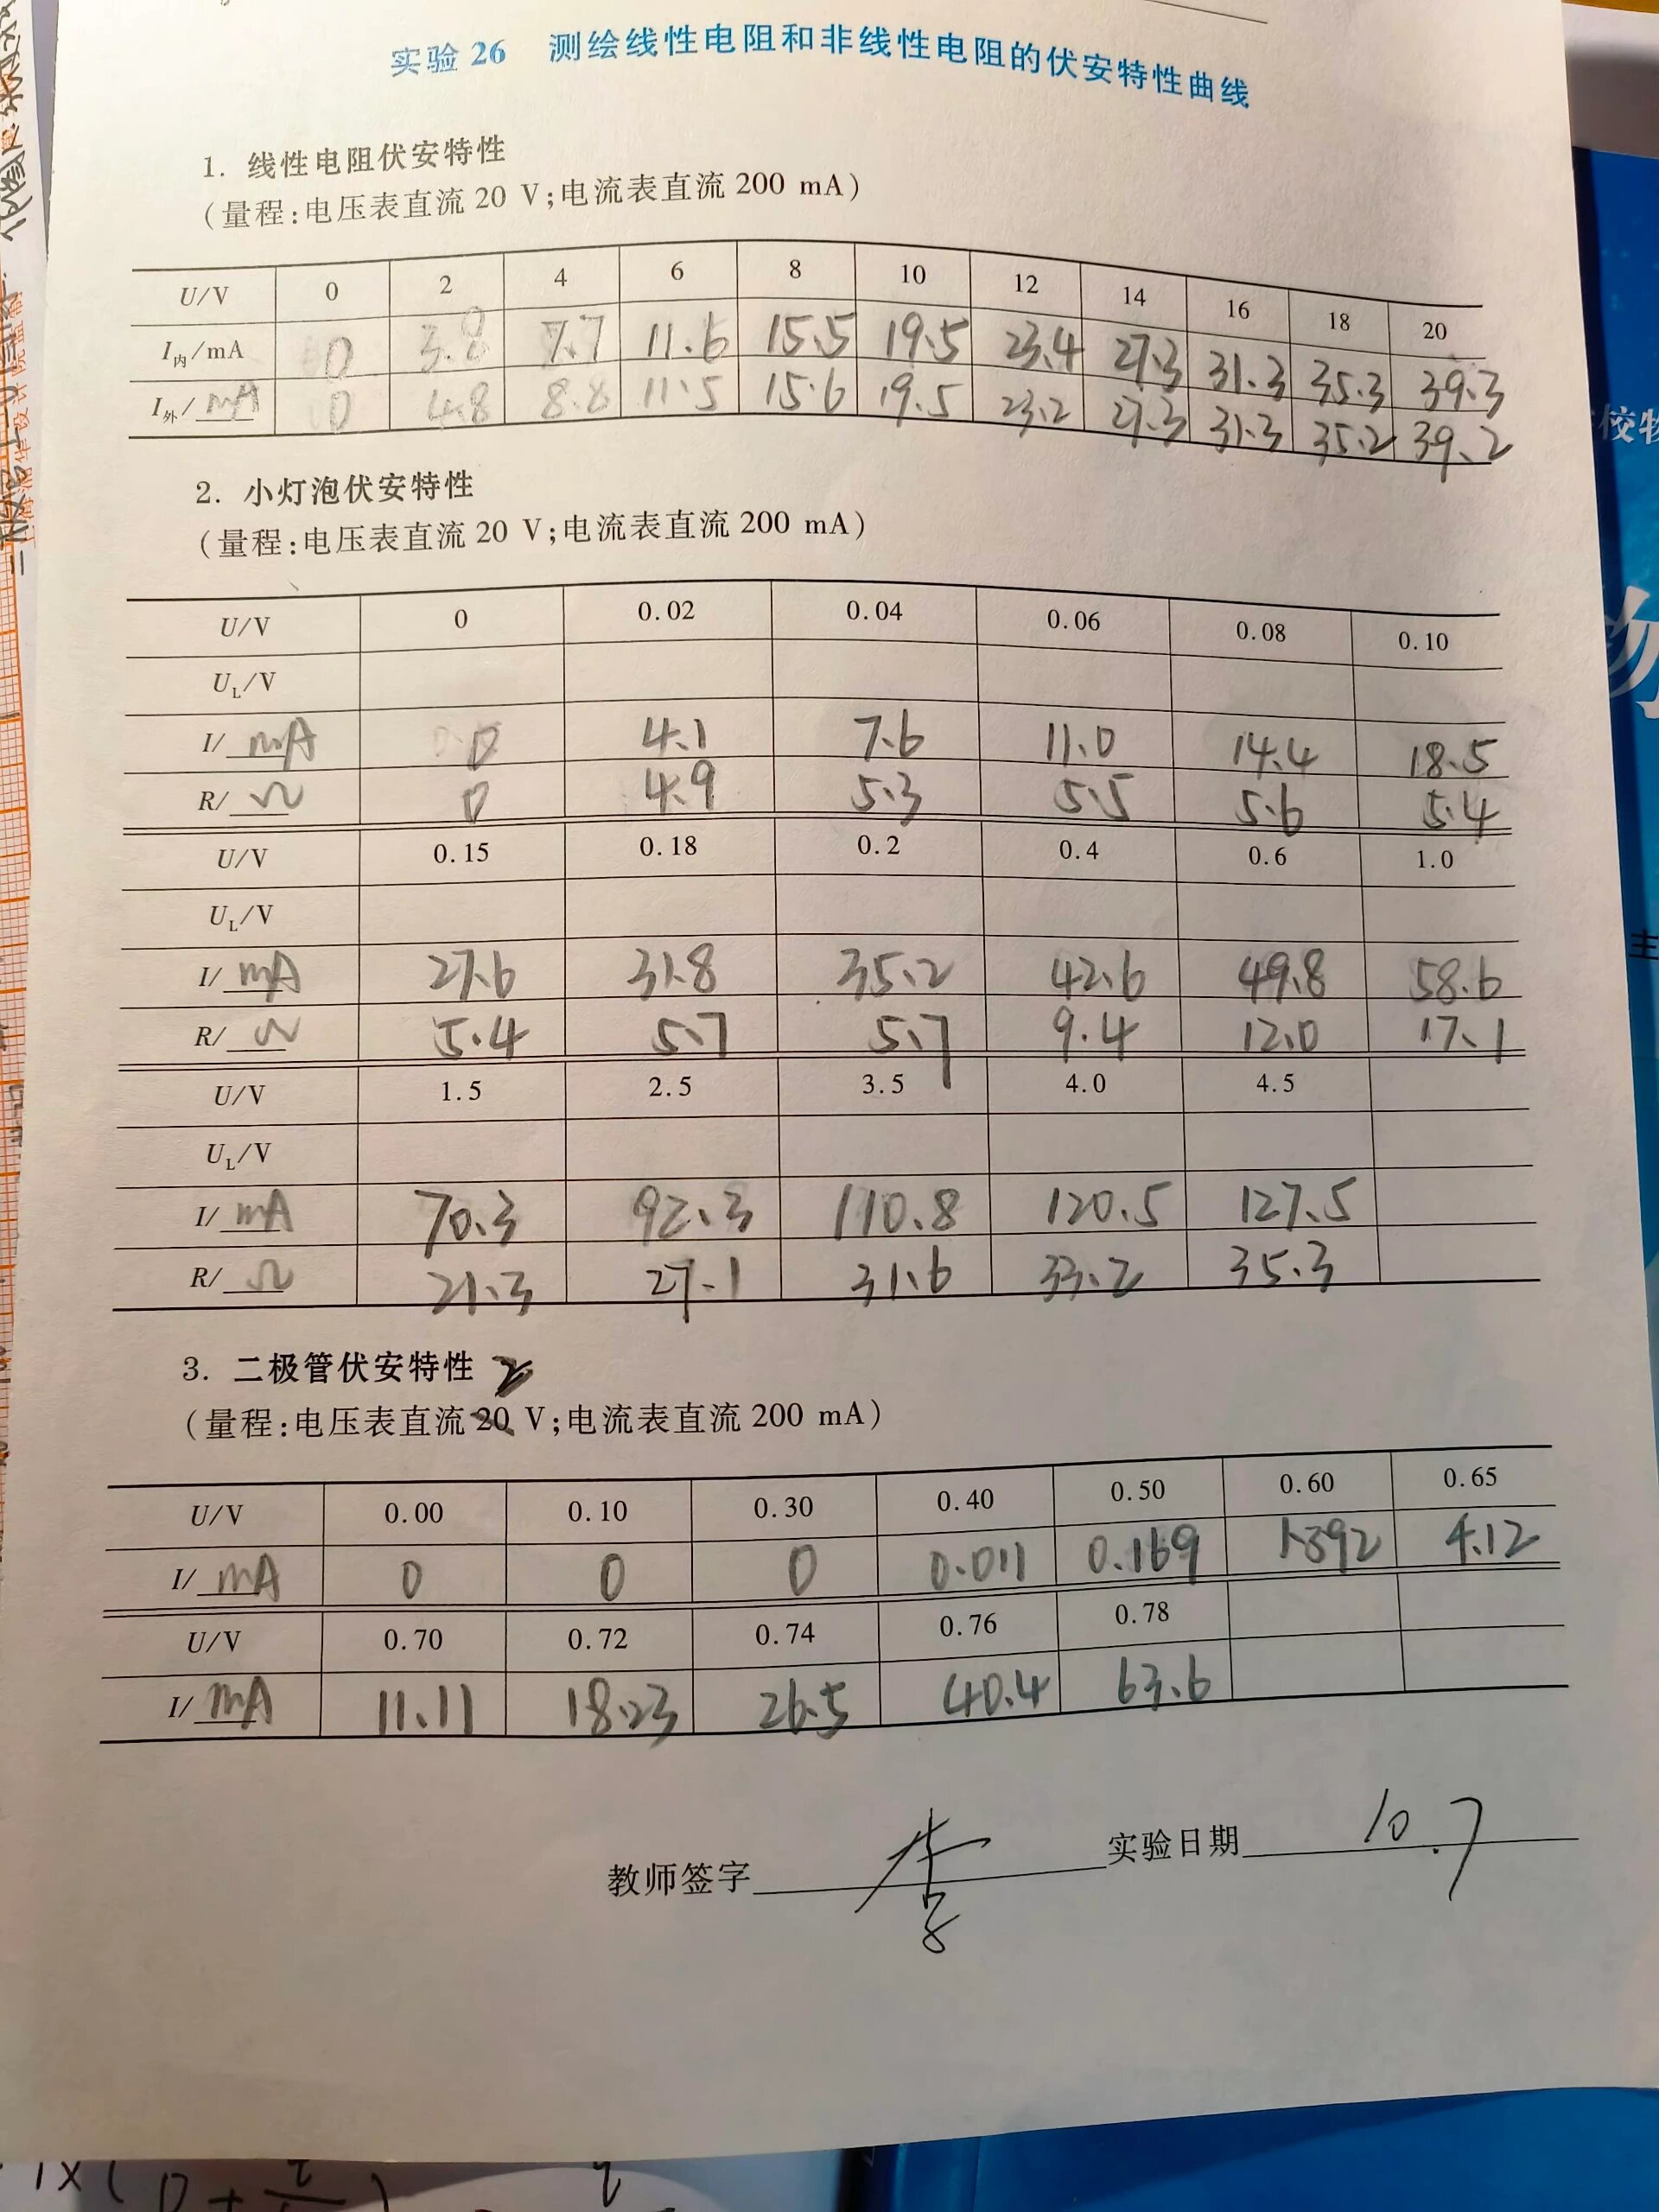 实验 26 测绘线性电阻和非线性电阻的伏安特性曲线
1. 线性电阻伏安特性
(量程:电压表直流 20 V;电流表直流 200 mA)
U/V 0 2 4 6 8 10 12 14 16 18 20
I内/mA 0 3.8 7.7 11.6 15.5 19.5 23.4 27.3 31.3 35.3 39.3
I外/mA 0 4.8 8.8 11.5 15.6 19.5 23.2 27.3 31.3 35.2 39.2
2. 小灯泡伏安特性
(量程:电压表直流 20 V;电流表直流 200 mA)
U/V 0 0.02 0.04 0.06 0.08 0.10
UL/V
I/mA 0 4.1 7.6 11.0 14.4 18.5
R/Ω 0 4.9 5.3 5.5 5.6 5.4
U/V 0.15 0.18 0.2 0.4 0.6 1.0
UL/V
I/mA 27.6 31.8 35.2 42.6 49.8 58.6
R/Ω 5.4 5.7 5.7 9.4 12.0 17.1
U/V 1.5 2.5 3.5 4.0 4.5
UL/V
I/mA 70.3 92.3 110.8 120.5 127.5
R/Ω 21.3 27.1 31.6 33.2 35.3
3. 二极管伏安特性
2
(量程:电压表直流 20 V;电流表直流 200 mA)
U/V 0.00 0.10 0.30 0.40 0.50 0.60 0.65
I/mA 0 0 0 0.011 0.169 1.392 4.12
U/V 0.70 0.72 0.74 0.76 0.78
I/mA 11.11 18.23 26.5 40.4 63.6
教师签字 实验日期 10.7
校物
物
主